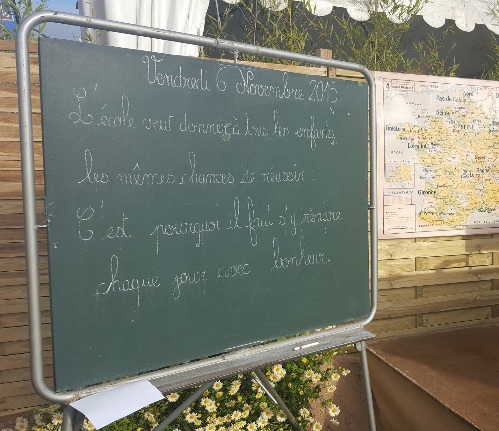 Vendredi 6 Novembre 2015
L'école veut donner à tous les enfants
les mêmes chances de réussir :
C'est pourquoi il faut s'y rendre
chaque jour avec bonheur.